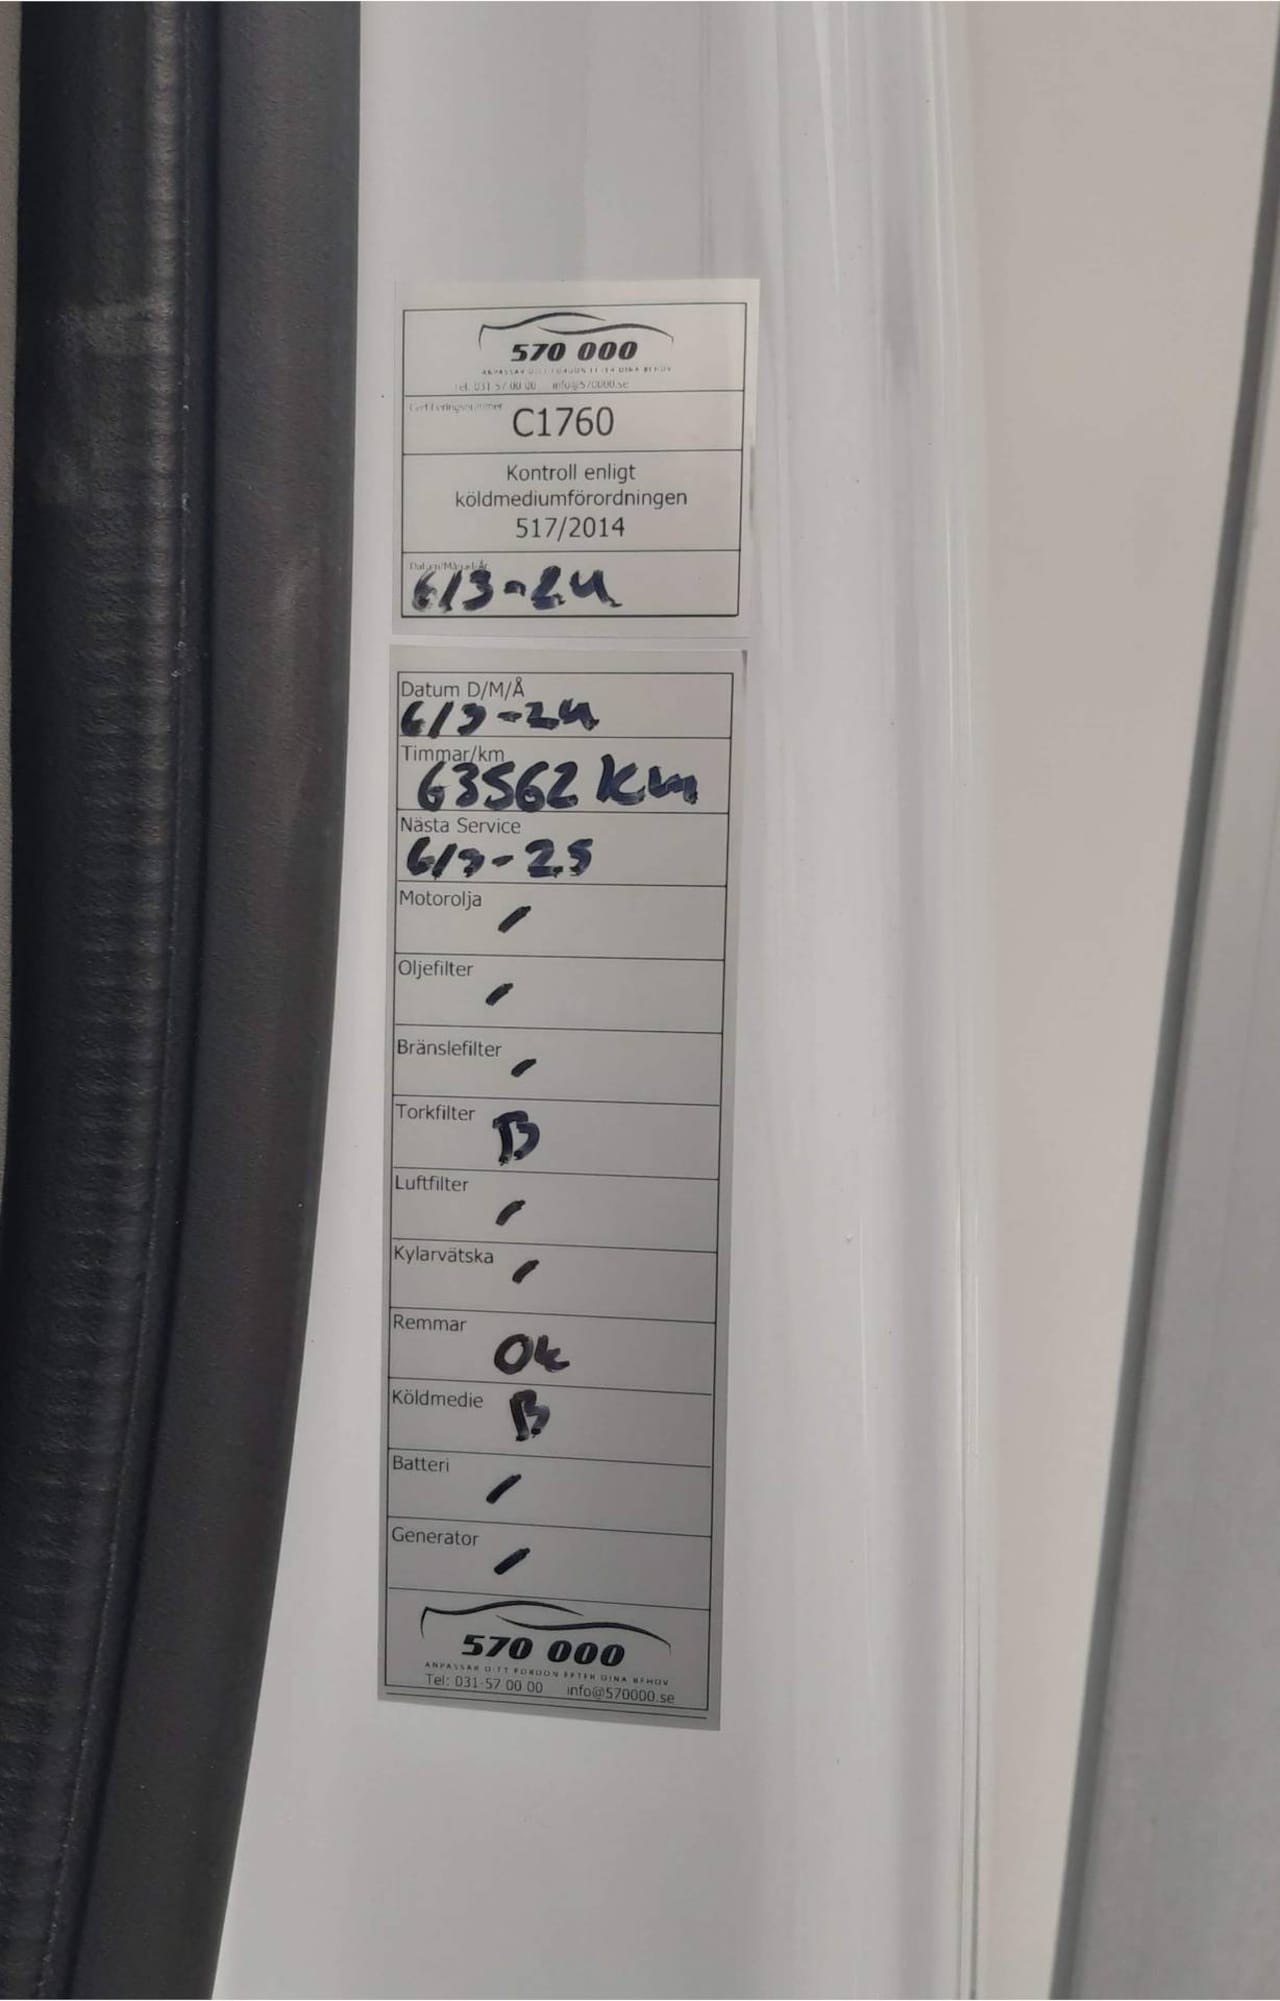 570 000
ANPASSAR DITT FORDON EFTER DINA BEHOV
Tel: 031-57 00 00 info@570000.se
Certifieringsnummer
C1760
Kontroll enligt
köldmediumförordningen
517/2014
Datum/Månad/År
6/3-24
Datum D/M/Å
6/3-24
Timmar/km
63562 Km
Nästa Service
6/3-25
Motorolja
/
Oljefilter
/
Bränslefilter
/
Torkfilter
B
Luftfilter
/
Kylarvätska
/
Remmar
Ok
Köldmedie
B
Batteri
/
Generator
/
570 000
ANPASSAR DITT FORDON EFTER DINA BEHOV
Tel: 031-57 00 00 info@570000.se